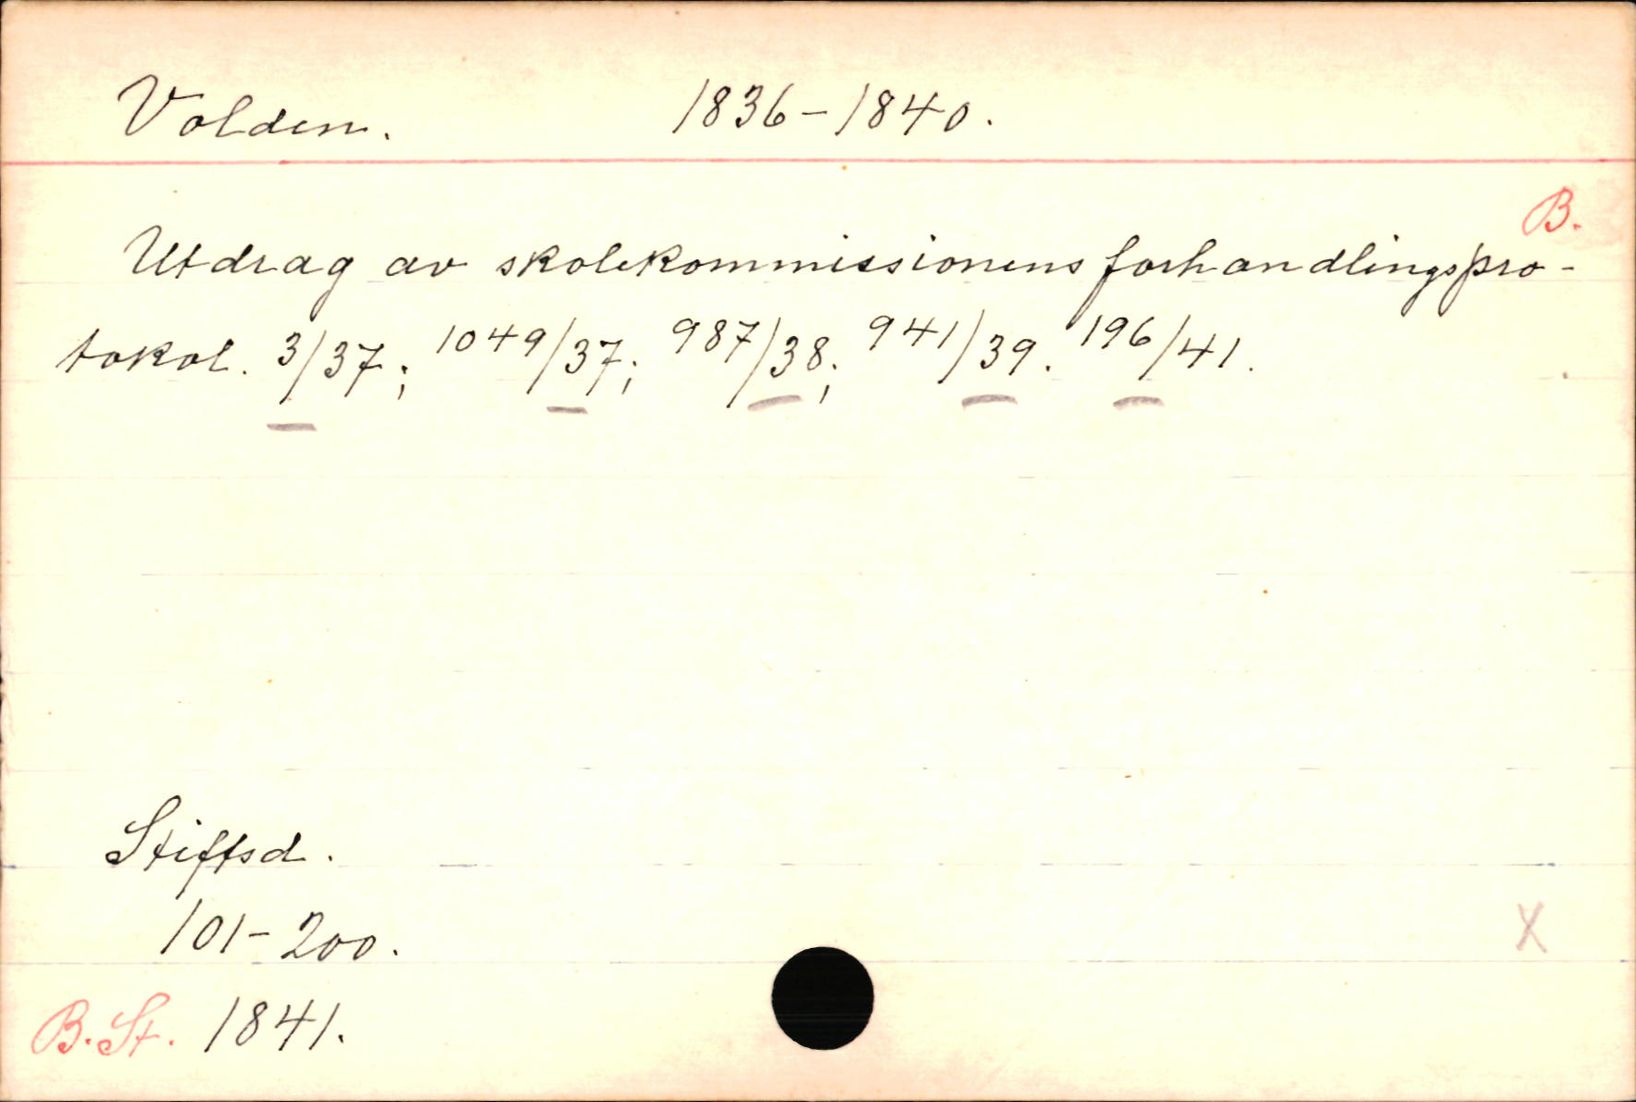 Volden. 1836-1840.
B.
Utdrag av skolekommissionens forhandlingspro-
tokol. 3/37; 1049/37; 987/38; 941/39. 196/41.
Stiftsd.
101-200.
X
B. St. 1841.